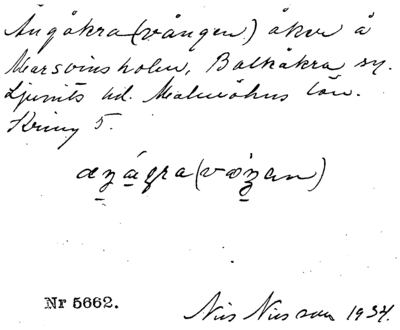 Ångåkra (vången) åker å
Marsvinsholm, Balkåkra sn.
Ljunits hd. Malmöhus län.
Kring 5.
(
)
Nr 5662.
Nils Nilsson 1934.